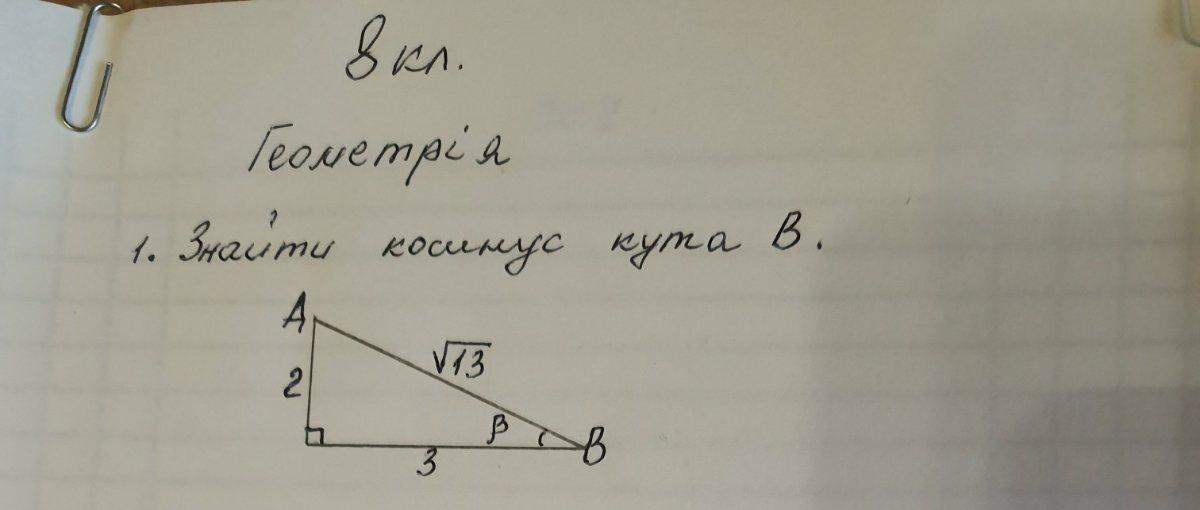 8 кл.
Геометрія
1. Знайти косинус кута В.
А
√13
2
β
В
3